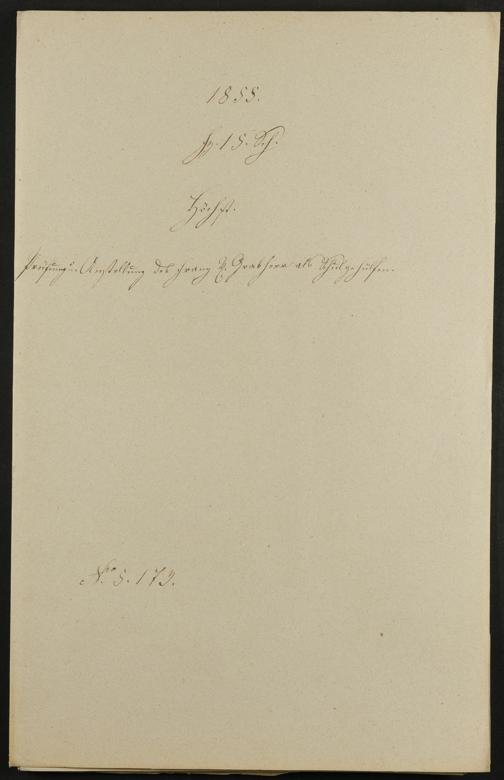 1855.
Fz. 15. Sch.
Höchst.
Prüfung u. Anstellung des Franz X. Grabherr als Schulgehülfen.
No. 5. 173.